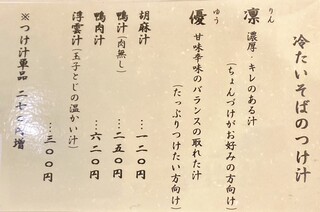 冷たいそばのつけ汁
凛 りん 濃厚 キレのある汁
(ちょんづけがお好みの方向け)
優 ゆう 甘味辛味のバランスの取れた汁
(たっぷりつけたい方向け)
胡麻汁 …一二〇円
鴨汁(肉無し) …二五〇円
鴨肉汁 …六二〇円
浮雲汁(玉子とじの温かい汁) …三〇〇円
※つけ汁単品 二七〇円増